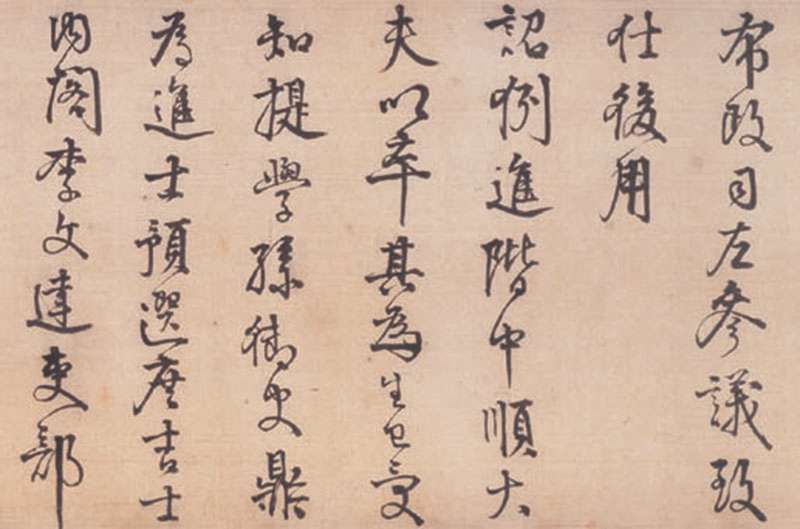 布政司左參議致
仕後用
詔例進階中順大
夫以卒其為生已受
知提學孫御史鼎
為進士預選庶吉士
內閣李文達吏部